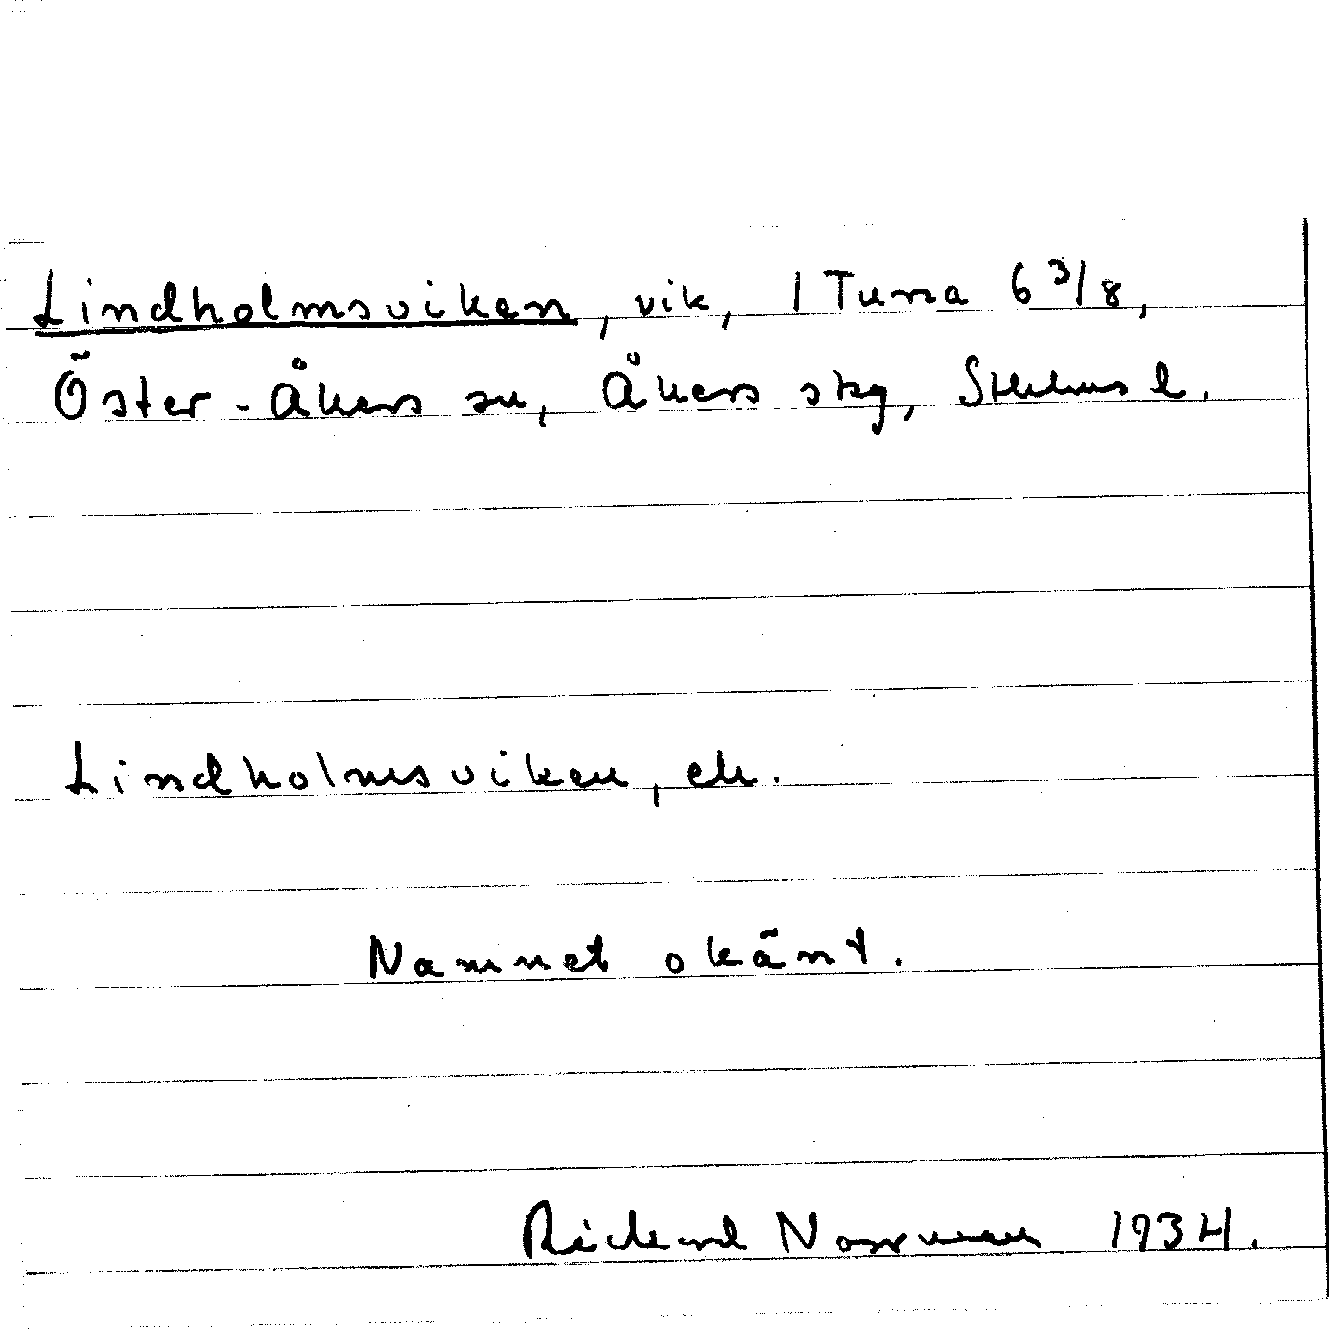 Lindholmsviken, vik, 1 Tuna 6 3/8,
Öster-Åkers sn, Åkers skg, Sthlms l.
Lindholmsviken, ek.
Namnet okänt.
Rickard Norrman 1934.